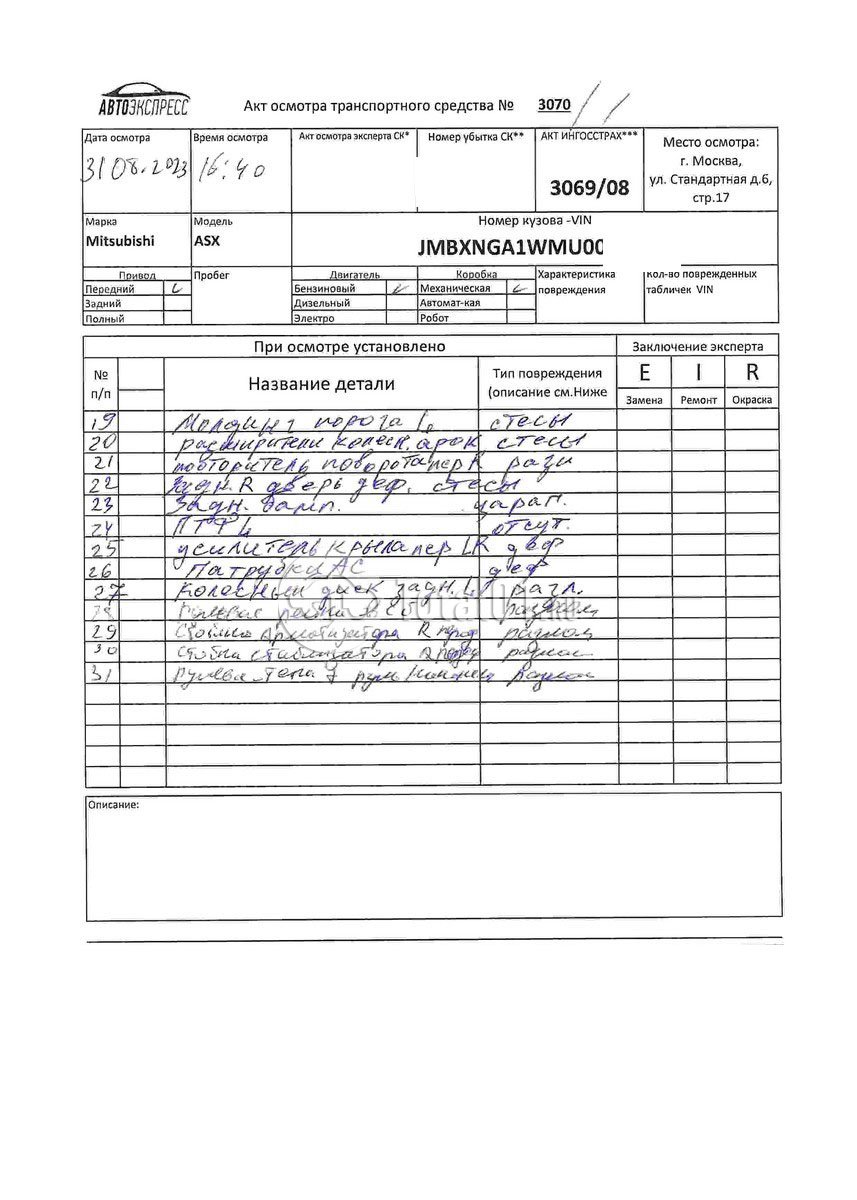 АВТОЭКСПРЕСС
Акт осмотра транспортного средства № 3070
Дата осмотра
31 08.2023
Время осмотра
16:40
Акт осмотра эксперта СК*
Номер убытка СК**
АКТ ИНГОССТРАХ***
3069/08
Место осмотра:
г. Москва,
ул. Стандартная д.6,
стр.17
Марка
Mitsubishi
Модель
ASX
Номер кузова -VIN
JMBXNGA1WMU00
Привод
Передний
Задний
Полный
Пробег
Двигатель
Бензиновый
Дизельный
Электро
Коробка
Механическая
Автомат-кая
Робот
Характеристика
повреждения
кол-во поврежденных
табличек VIN
При осмотре установлено
Заключение эксперта
№
п/п
Название детали
Тип повреждения
(описание см.Ниже
E I R
Замена Ремонт Окраска
19 Молдинг порога L стесы
20 расширители колесн. арок стесы
21 повторитель поворота пер R разл
22 Задн. R дверь деф. стесы
23 Задн. бамп. царап.
24 ПТФ L отсут.
25 усилитель крыла пер LR деф
26 Патрубки АС деф
27 Колесный диск задн. L разл.
28 Рулевая разлом
29 Стойка R разлом
30 Стойка стабилизатора разлом
31 разлом
Описание: